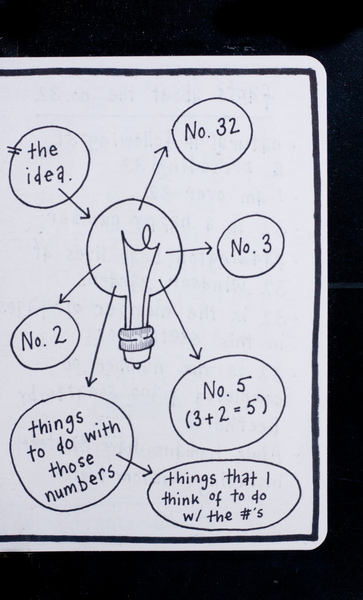 the
idea.
No. 32
No. 3
No. 2
No. 5
(3+2=5)
things
to do with
those
numbers
things that I
think of to do
w/ the #'s